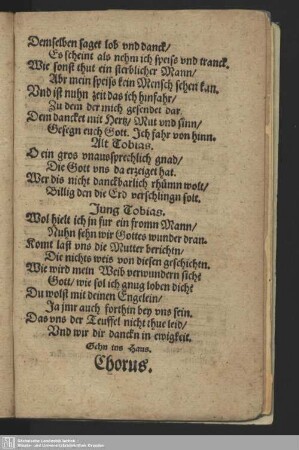 Demselben saget lob vnd danck/
Es scheint als nehm ich speiss vnd tranck.
Wie sonst thut ein sterblicher Mann/
Abr mein speiss kein Mensch sehen kan.
Vnd ist nuhn zeit das ich hinfahr/
Zu dem der mich gesendet dar
Dem dancket mit Hertz/ Mut vnd sinn/
Gesegn euch Gott. Ich fahr von hinn.
Alt Tobias.
O ein gros vnauwsprechlich gnad/
Die Gott vns da erzeiget hat.
Wer dis nicht danckbarlich rhümn wolt/
Billig den die Erd verschlingn solt.
Jung Tobias.
Wol hielt ich jn fur ein fromn Mann/
Nuhn sehn wir Gottes wunder dran.
Komt last vns die Mutter berichtn/
Die nichts weis von diesen geschichtn.
Wie wird mein Weib verwundern sich
Gott/ wie sol ich gnug loben dich
Du wolst mit deinen Engelein/
Ja jmr auch forthin bey vns sein.
Das vns der Teuffel nicht thue leid/
Vnd wir dir danckn in ewigkeit.
Gehn ins Haus.
Chorus.